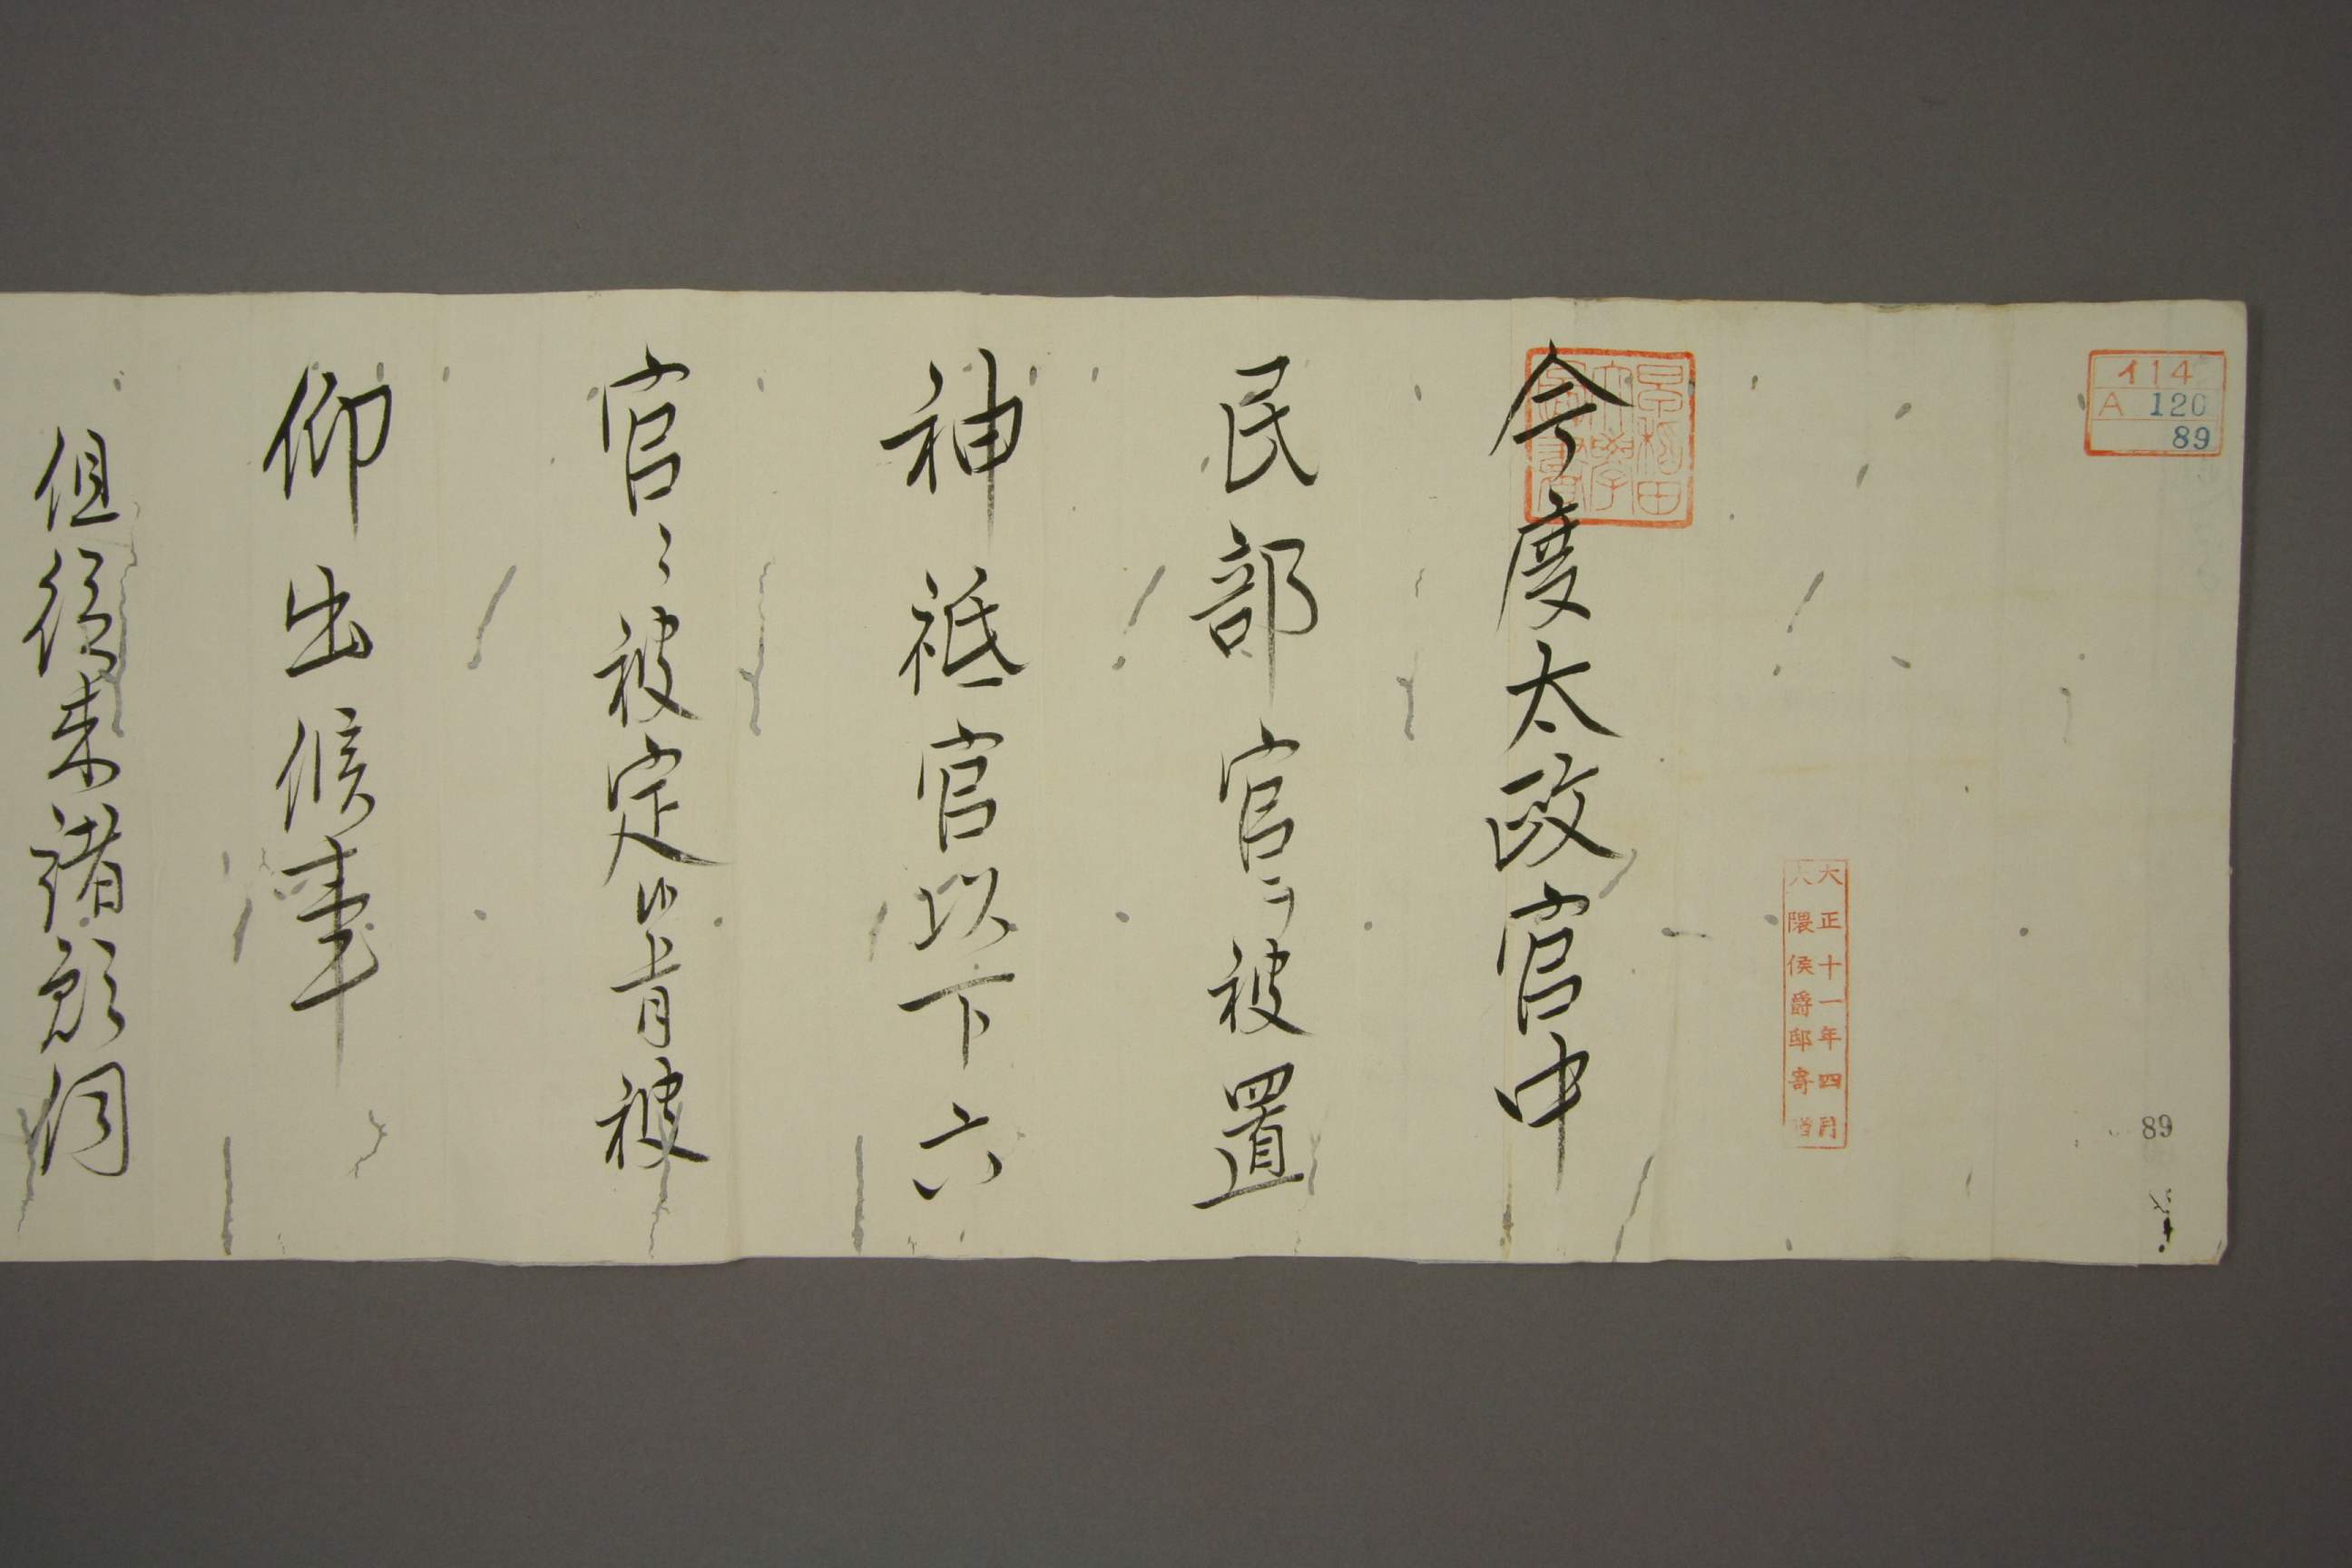 イ14
A 120
89
89
大正十一年四月
大隈侯爵邸寄贈
早稲田
大學
圖書
今度太政官中
民部官ヲ被置
神祇官以下六
官ニ被定候旨被
仰出候事
但従来諸願伺